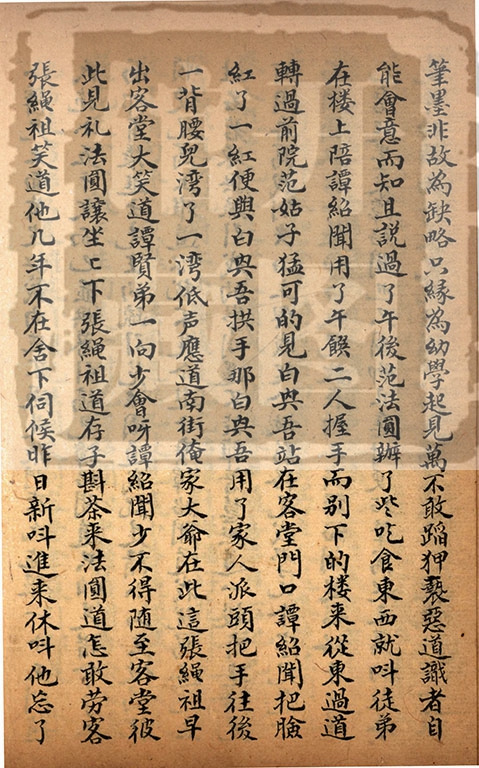 筆墨非故為缺略只緣為幼學起見萬不敢蹈狎褻惡道識者自
能會意而知且説過了午後范法圓辦了些吃食東西就呌徒弟
在楼上陪譚紹聞用了午饌二人握手而别下的楼来從東過道
轉過前院范姑子猛可的見白與吾站在客堂門口譚紹聞把臉
紅了一紅便與白與吾拱手那白與吾用了家人派頭把手往後
一背腰兒湾了一湾低声應道南街俺家大爺在此這張繩祖早
出客堂大笑道譚賢弟一向少會呀譚紹聞少不得随至客堂彼
此見礼法圓讓坐上下張繩祖道存子斟茶来法圓道怎敢劳客
張繩祖笑道他几年不在舍下伺候昨日新呌進来休呌他忘了